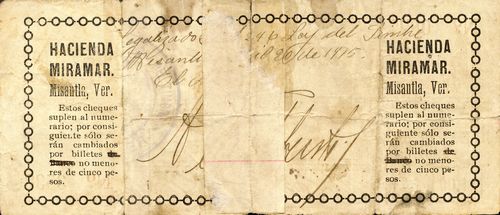 HACIENDA
MIRAMAR.
Misantla, Ver.
Estos cheques
suplen al nume-
rario; por consi-
guiente sólo se-
rán cambiados
por billetes de
Banco no meno-
res de cinco pe-
sos.
Ley del Timbre
26 de 1915.
El
HACIENDA
MIRAMAR.
Misantla, Ver.
Estos cheques
suplen al nume-
rario; por consi-
guiente sólo se-
rán cambiados
por billetes de
Banco no meno-
res de cinco pe-
sos.